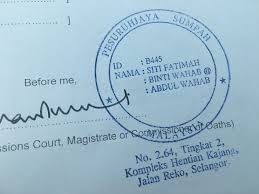 PESURUHJAYA SUMPAH
ID : B445
NAMA : SITI FATIMAH
BINTI WAHAB @
ABDUL WAHAB
MALAYSIA
Before me,
ssions Court, Magistrate or Commissioner of Oaths)
No. 2.64, Tingkat 2,
Kompleks Hentian Kajang,
Jalan Reko, Selangor.